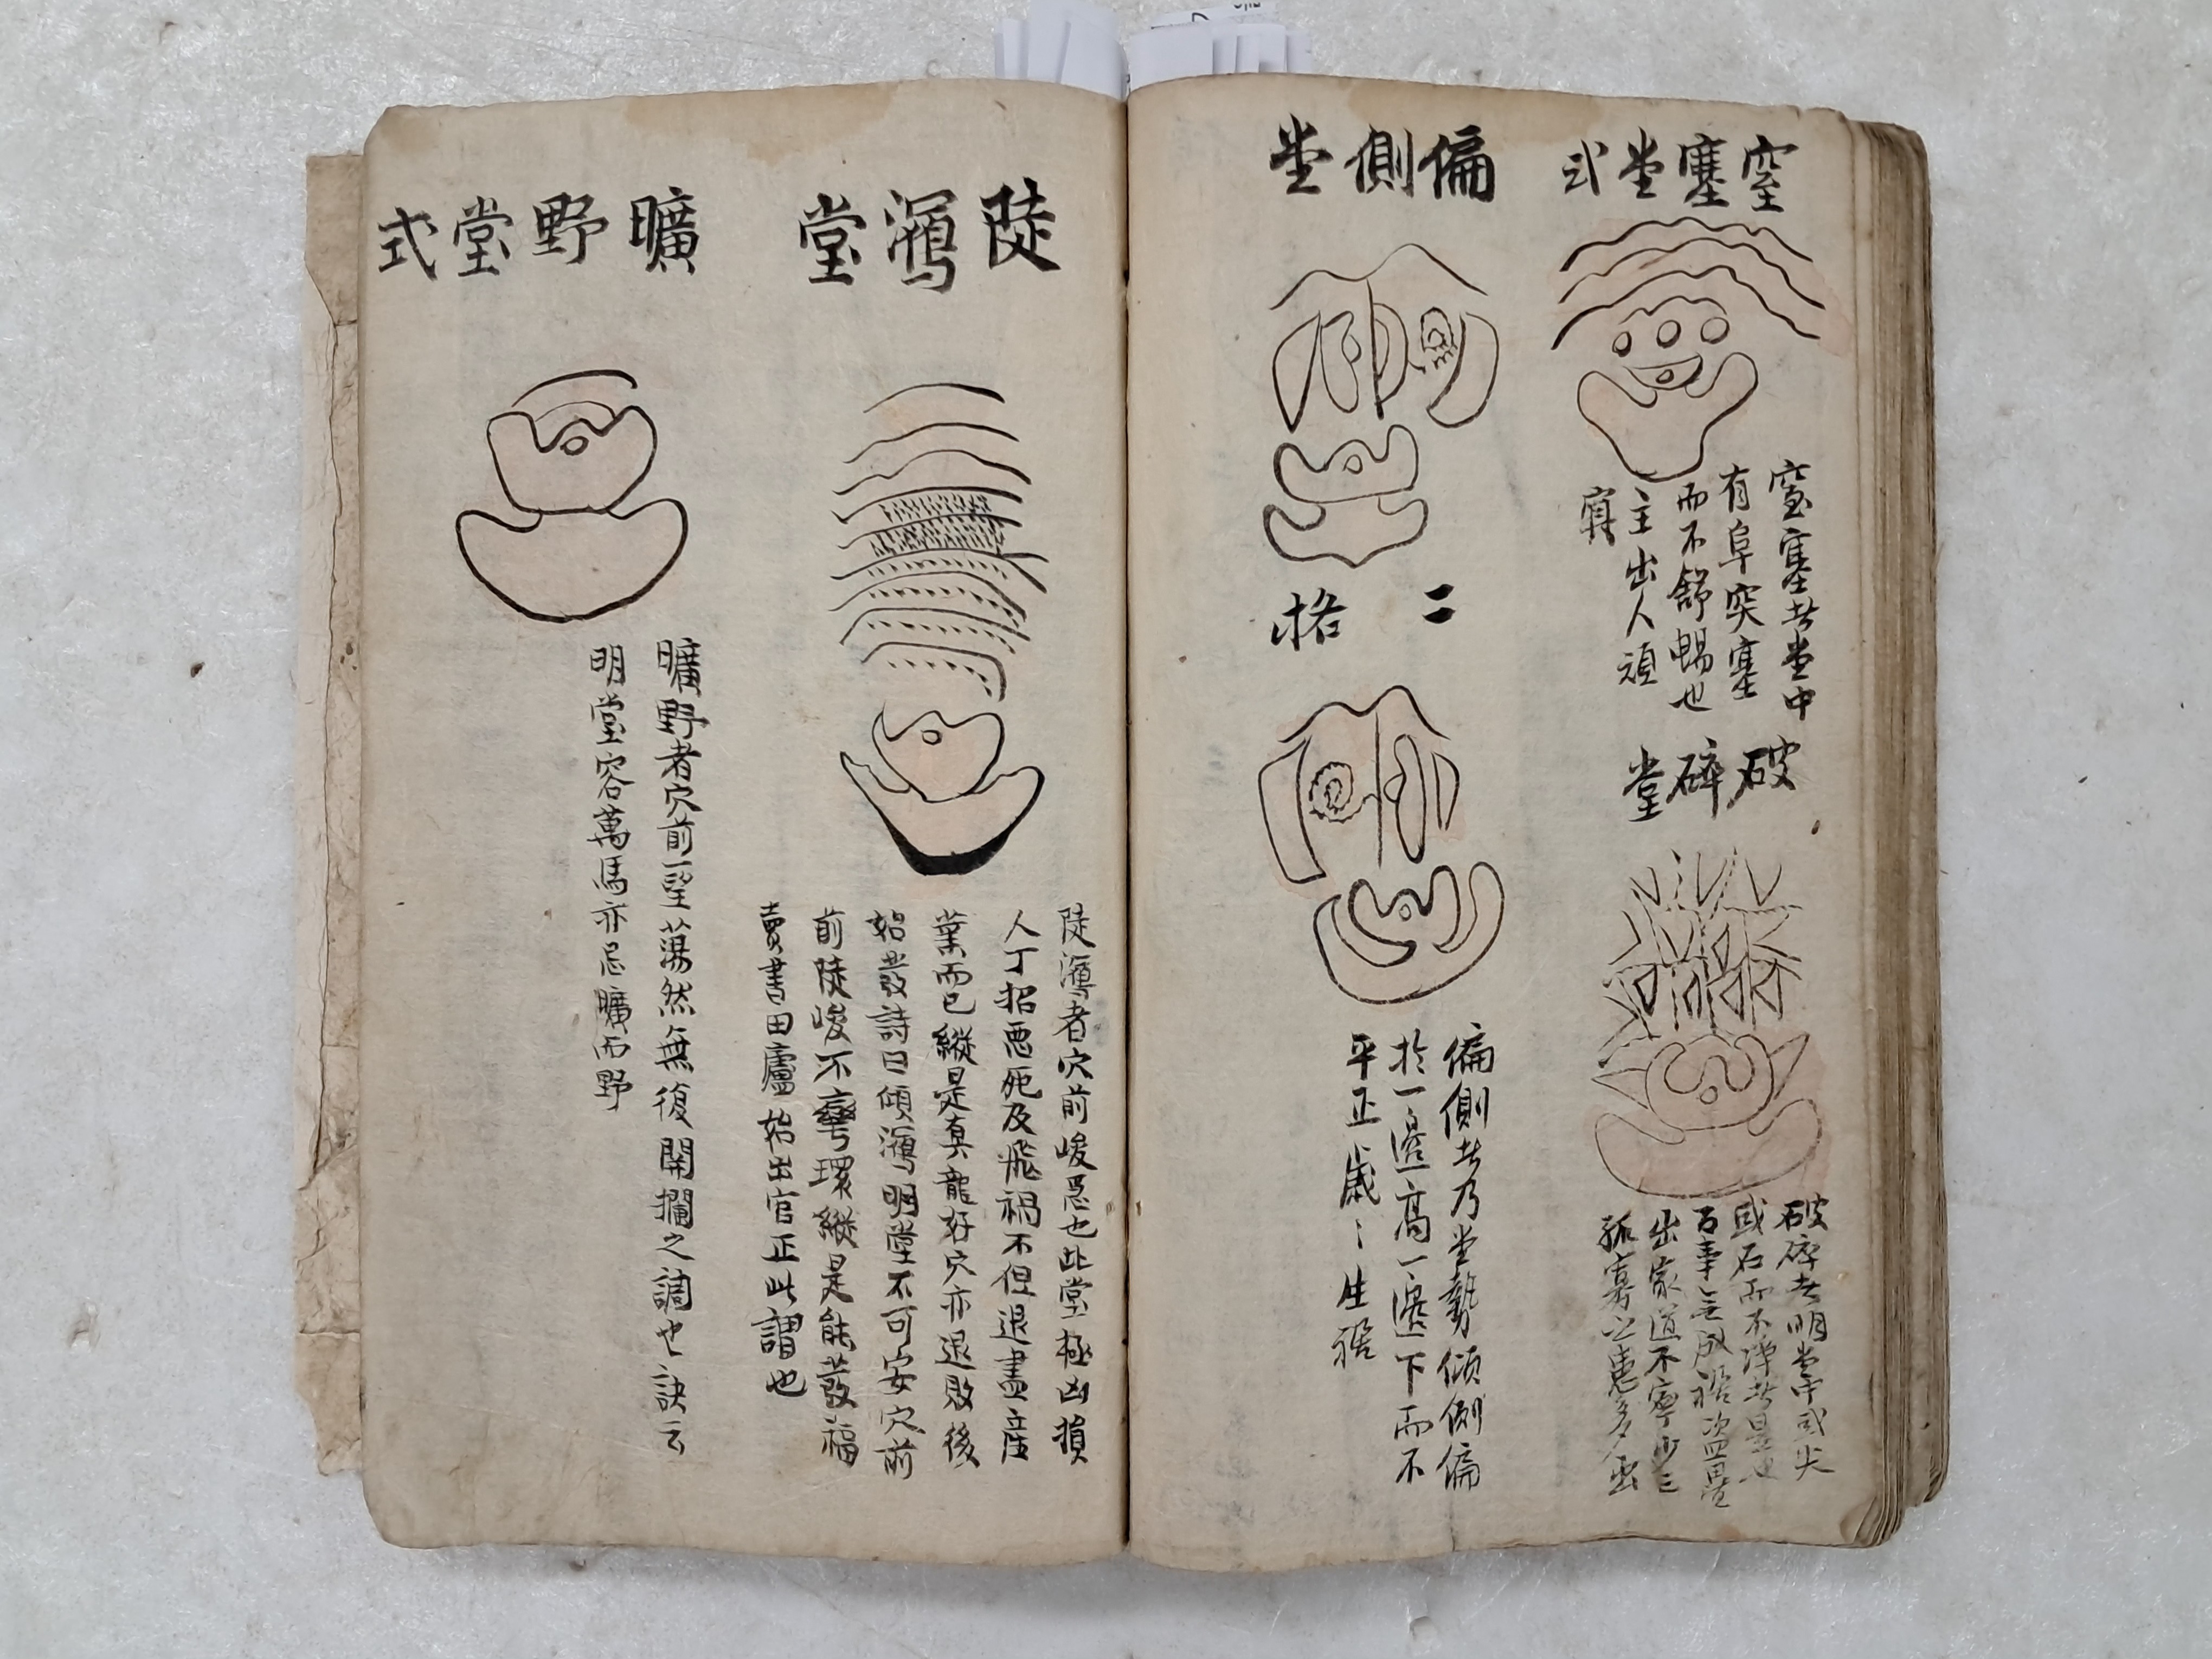 窒塞堂式
窒塞者堂中
有阜突塞
而不舒暢也
主出人頑
破碎堂
破碎者明堂中或尖
或石而不淨者是也
百事無成禍盜疊
出家道不寧少亡
孤寡
偏側堂
二格
偏側者乃堂勢傾側偏
於一邊高一邊下而不
平正歲〻生
陡瀉堂
陡瀉者穴前峻惡也此堂極凶損
人丁招惡死及飛禍不但退盡產
業而已縱是真龍好穴亦退敗後
始發詩曰傾瀉明堂不可安穴前
前陡峻不彎環縱是能發福
賣書田廬始出官正此謂也
曠野堂式
曠野者穴前一望蕩然無復開攔之謂也訣云
明堂容萬馬亦忌曠而野